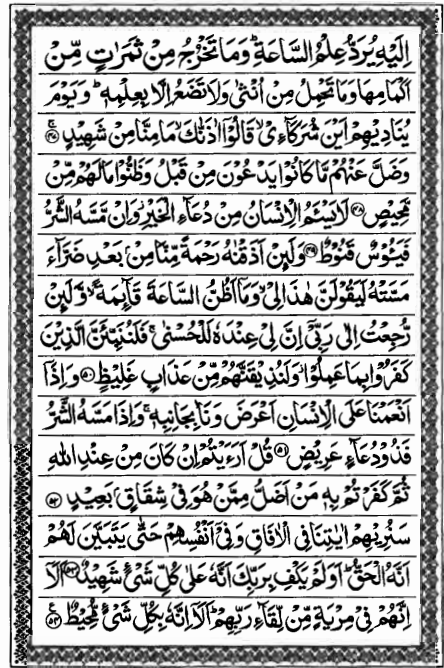 اِلَيْهِ يُرَدُّ عِلْمُ السَّاعَةِ ؕ وَمَا تَخْرُجُ مِنْ ثَمَرٰتٍ مِّنْ
اَكْمَامِهَا وَمَا تَحْمِلُ مِنْ اُنْثٰى وَلَا تَضَعُ اِلَّا بِعِلْمِهٖ ؕ وَيَوْمَ
يُنَادِيْهِمْ اَيْنَ شُرَكَآءِىْ ۙ قَالُوْۤا اٰذَنّٰكَ ۙ مَا مِنَّا مِنْ شَهِيْدٍ ۚ﴿۴۷﴾
وَضَلَّ عَنْهُمْ مَّا كَانُوْا يَدْعُوْنَ مِنْ قَبْلُ وَظَنُّوْا مَا لَهُمْ مِّنْ
مَّحِيْصٍ ﴿۴۸﴾ لَا يَسْـَٔمُ الْاِنْسَانُ مِنْ دُعَآءِ الْخَيْرِ وَاِنْ مَّسَّهُ الشَّرُّ
فَيَـُٔوْسٌ قَنُوْطٌ ﴿۴۹﴾ وَلَئِنْ اَذَقْنٰهُ رَحْمَةً مِّنَّا مِنْۢ بَعْدِ ضَرَّآءَ
مَسَّتْهُ لَيَقُوْلَنَّ هٰذَا لِىْ ۙ وَمَاۤ اَظُنُّ السَّاعَةَ قَآئِمَةً ۙ وَّلَئِنْ
رُّجِعْتُ اِلٰى رَبِّىْۤ اِنَّ لِىْ عِنْدَهٗ لَلْحُسْنٰى ۚ فَلَنُنَبِّئَنَّ الَّذِيْنَ
كَفَرُوْا بِمَا عَمِلُوْا ۫ وَلَنُذِيْقَنَّهُمْ مِّنْ عَذَابٍ غَلِيْظٍ ﴿۵۰﴾ وَاِذَاۤ
اَنْعَمْنَا عَلَى الْاِنْسَانِ اَعْرَضَ وَنَاٰ بِجَانِبِهٖ ۚ وَاِذَا مَسَّهُ الشَّرُّ
فَذُوْ دُعَآءٍ عَرِيْضٍ ﴿۵۱﴾ قُلْ اَرَءَيْتُمْ اِنْ كَانَ مِنْ عِنْدِ اللّٰهِ
ثُمَّ كَفَرْتُمْ بِهٖ مَنْ اَضَلُّ مِمَّنْ هُوَ فِىْ شِقَاقٍۭ بَعِيْدٍ ﴿۵۲﴾
سَنُرِيْهِمْ اٰيٰتِنَا فِى الْاٰفَاقِ وَفِىْۤ اَنْفُسِهِمْ حَتّٰى يَتَبَيَّنَ لَهُمْ
اَنَّهُ الْحَقُّ ؕ اَوَلَمْ يَكْفِ بِرَبِّكَ اَنَّهٗ عَلٰى كُلِّ شَىْءٍ شَهِيْدٌ ﴿۵۳﴾ اَلَاۤ
اِنَّهُمْ فِىْ مِرْيَةٍ مِّنْ لِّقَآءِ رَبِّهِمْ ؕ اَلَاۤ اِنَّهٗ بِكُلِّ شَىْءٍ مُّحِيْطٌ ﴿۵۴﴾